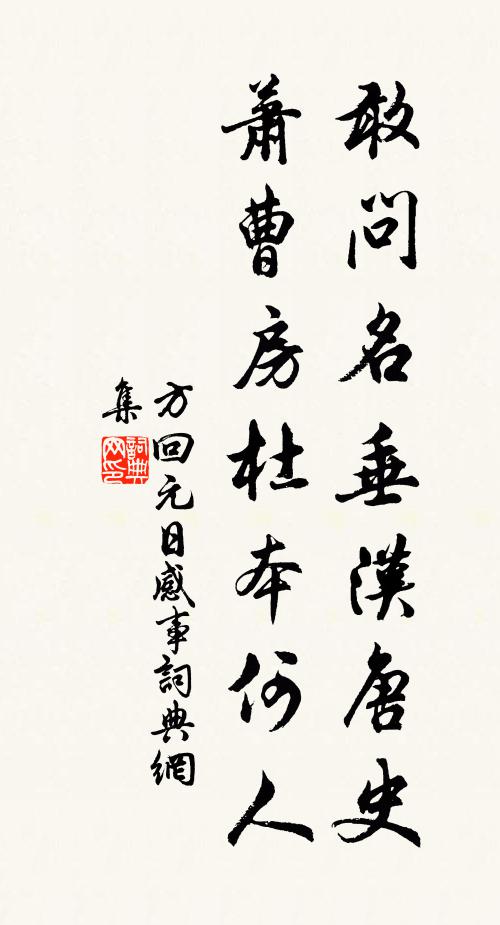 敢問名垂漢唐史
蕭曹房杜本何人
方回元日感事詞典網
集
詞典網印